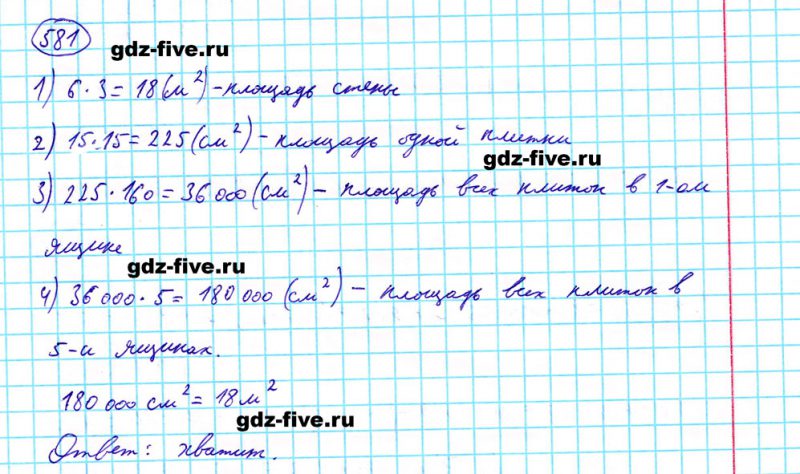 581
gdz-five.ru
1) 6 · 3 = 18 (м²) - площадь стены
2) 15 · 15 = 225 (см²) - площадь одной плитки
gdz-five.ru
3) 225 · 160 = 36 000 (см²) - площадь всех плиток в 1-ом
ящике
gdz-five.ru
4) 36 000 · 5 = 180 000 (см²) - площадь всех плиток в
5-и ящиках.
180 000 см² = 18 м²
gdz-five.ru
Ответ: хватит.